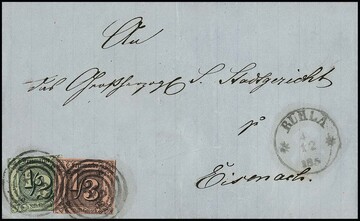 An
das Großherzogl. S. Stadtgericht
p
Eisenach.
RUHLA
4
12
186
1/2
1/3